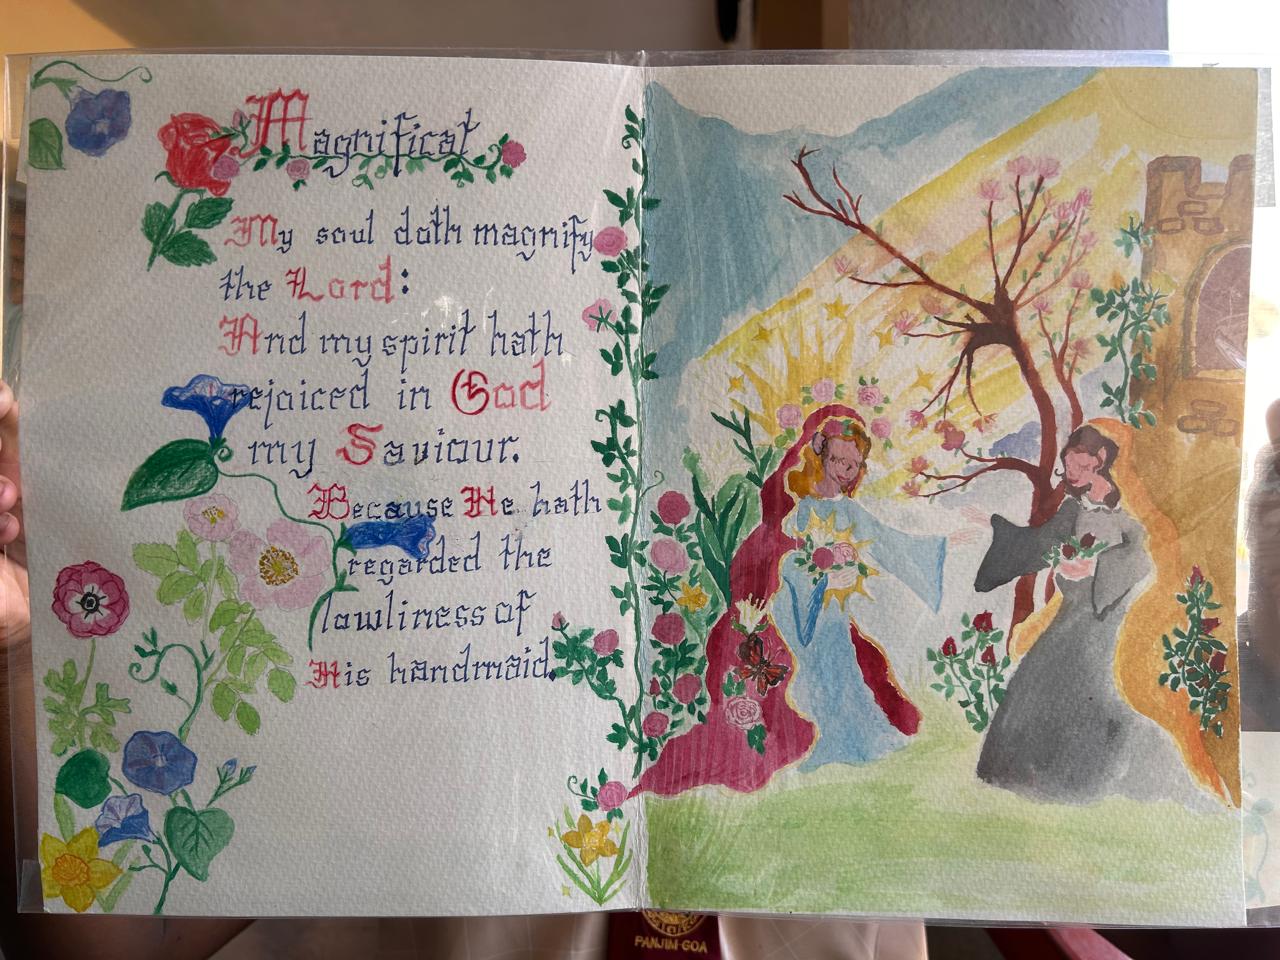 Magnificat
My soul doth magnify
the Lord:
And my spirit hath
rejoiced in God
my Saviour.
Because He hath
regarded the
lowliness of
His handmaid.
PANJIM-GOA